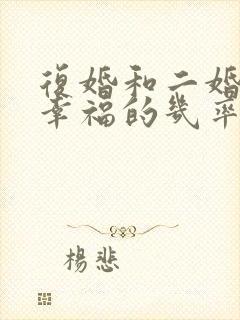 復婚和二婚
幸福的幾率
楊悲